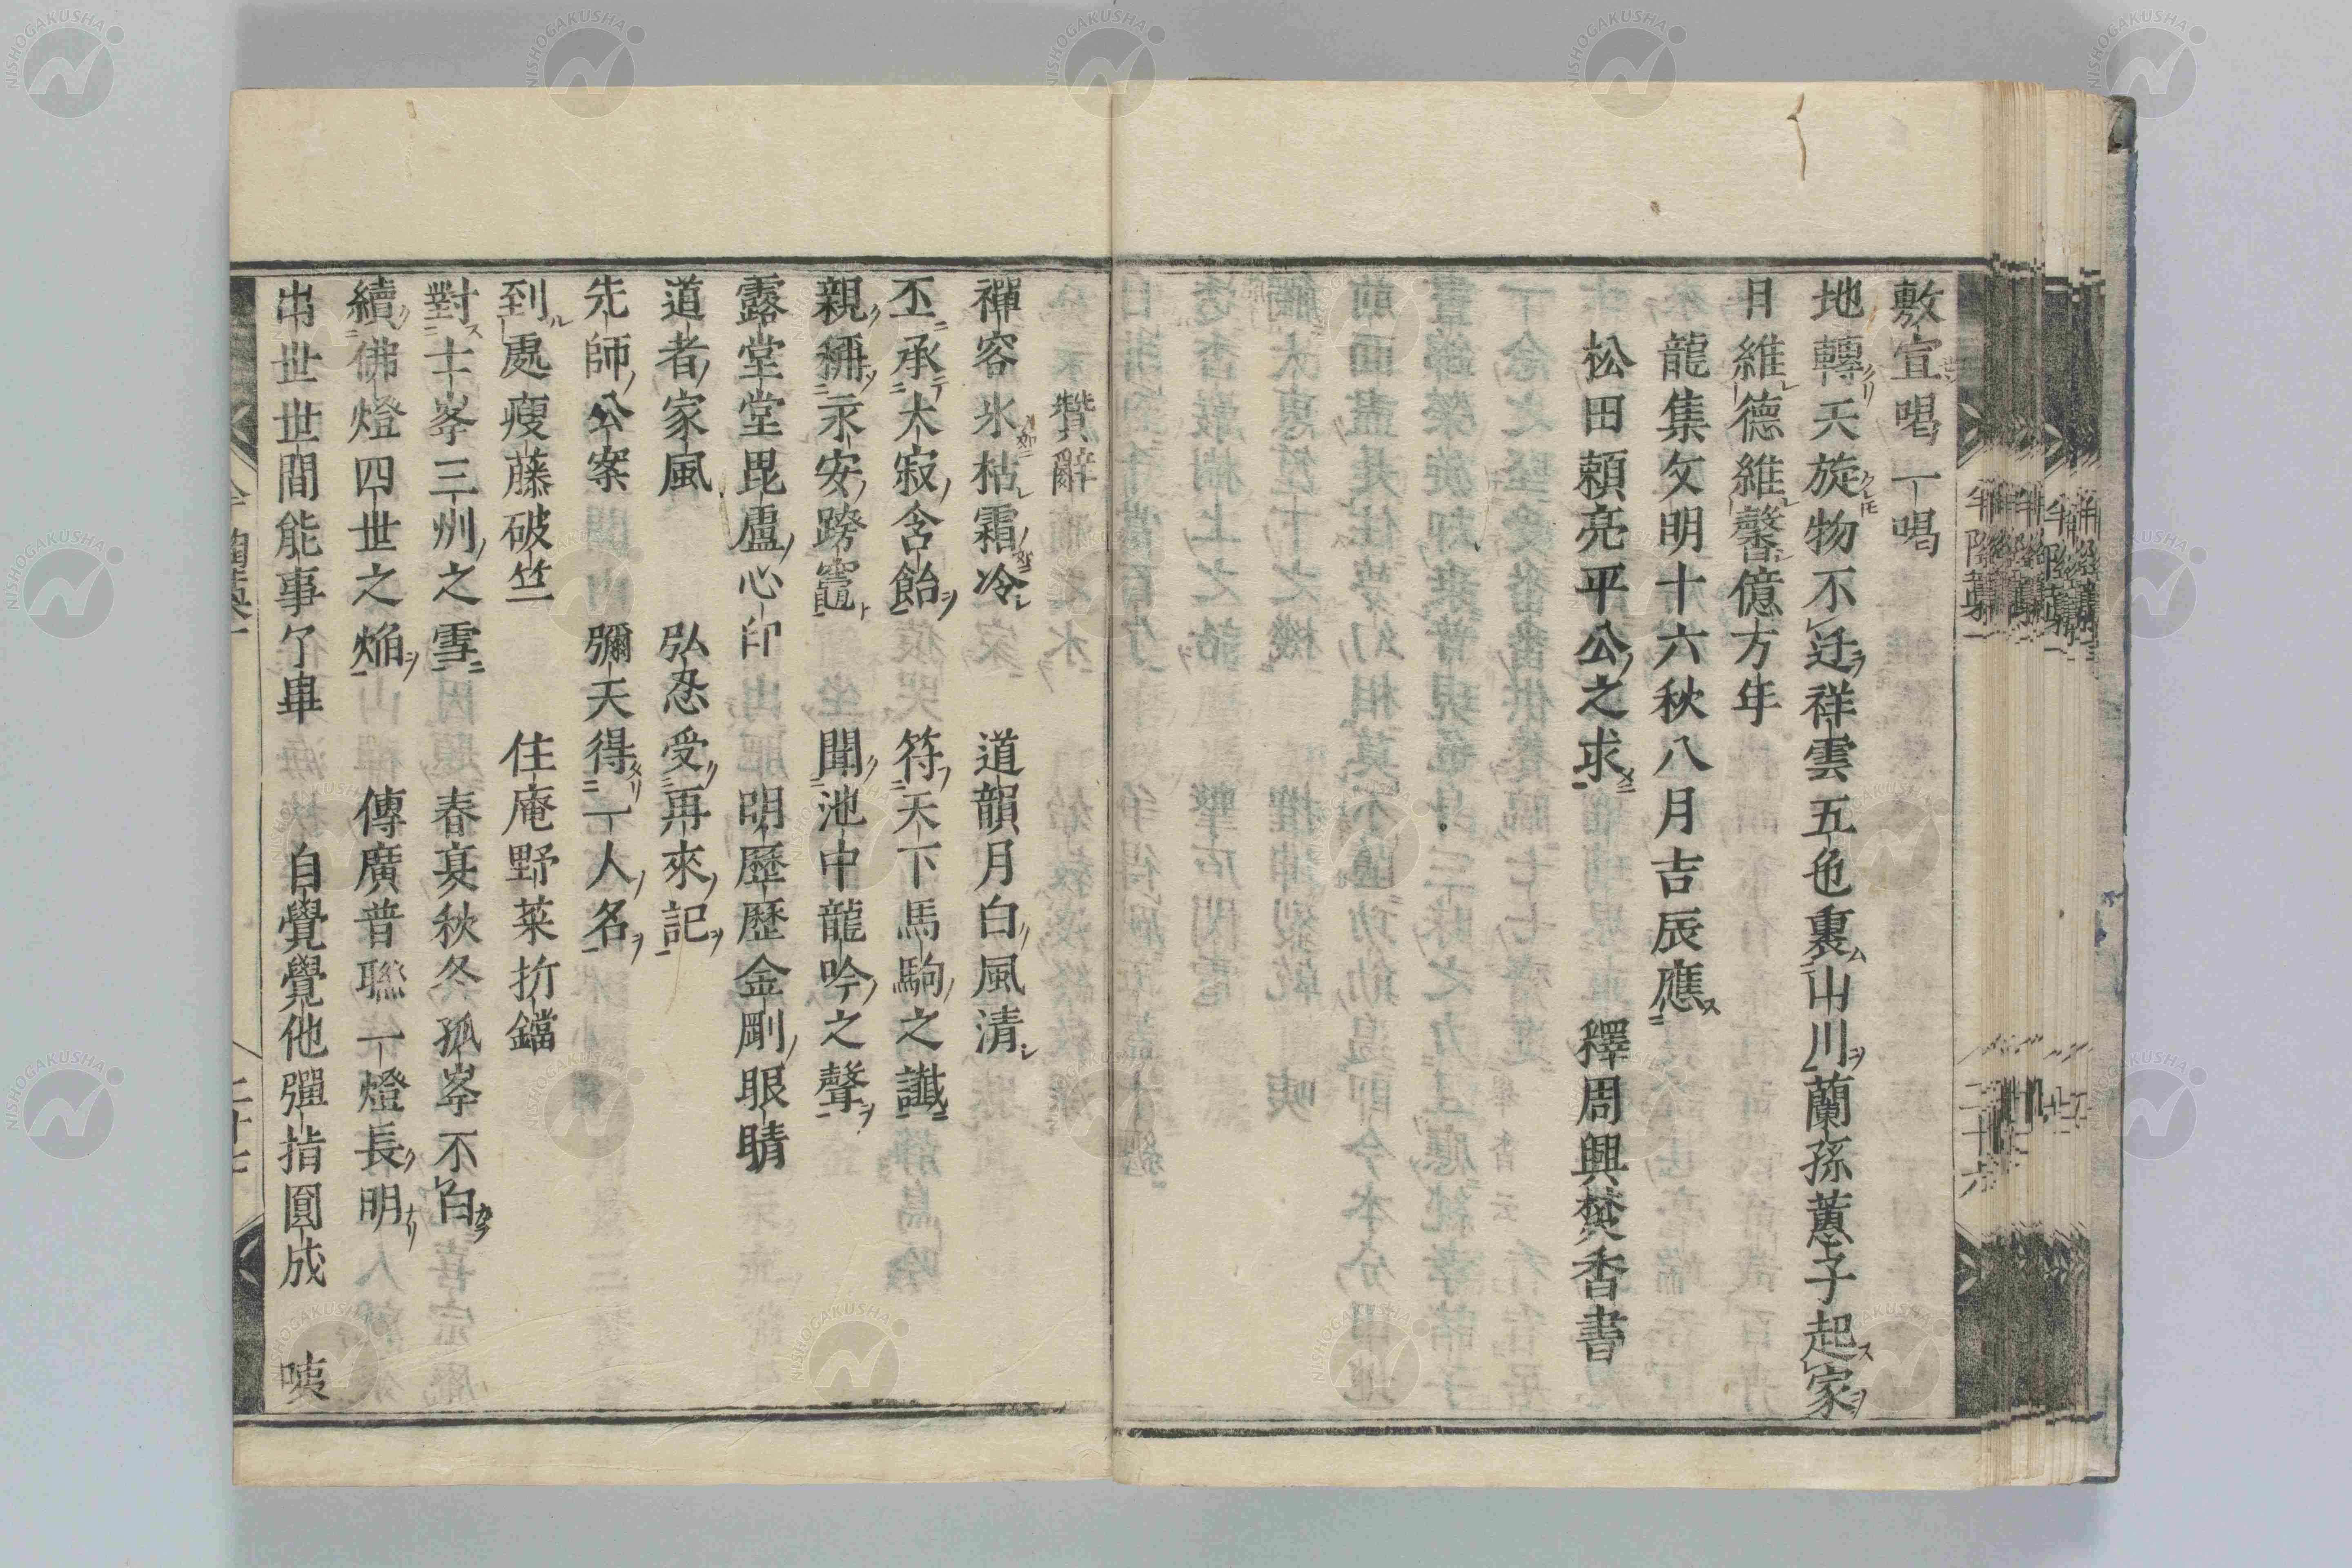 敷宣喝一喝
地轉天旋物不迁祥雲五色裏山川蘭孫蕙子起家
日維德維馨億万年
龍集文明十六秋八月吉辰應
松田頼亮平公之求　釋周興焚香書
贊辭
禪容氷枯霜冷　道韻月白風清
丕承大寂含飴　符天下馬駒之讖
親稱永安跨竈　聞池中龍吟之聲
露堂堂毘盧心印　明歷歷金剛眼睛
道者家風　弘忍受再來記
先師公案　彌天得一人名
到處瘦藤破笠　住庵野菜折鐺
對士峯三州之雪　春夏秋冬孤峯不白
續佛燈四世之焔　傳廣普聯一燈長明
出世世間能事了畢　自覺覺他彈指圓成　咦
二十七
二十六
NISHOGAKUSHA